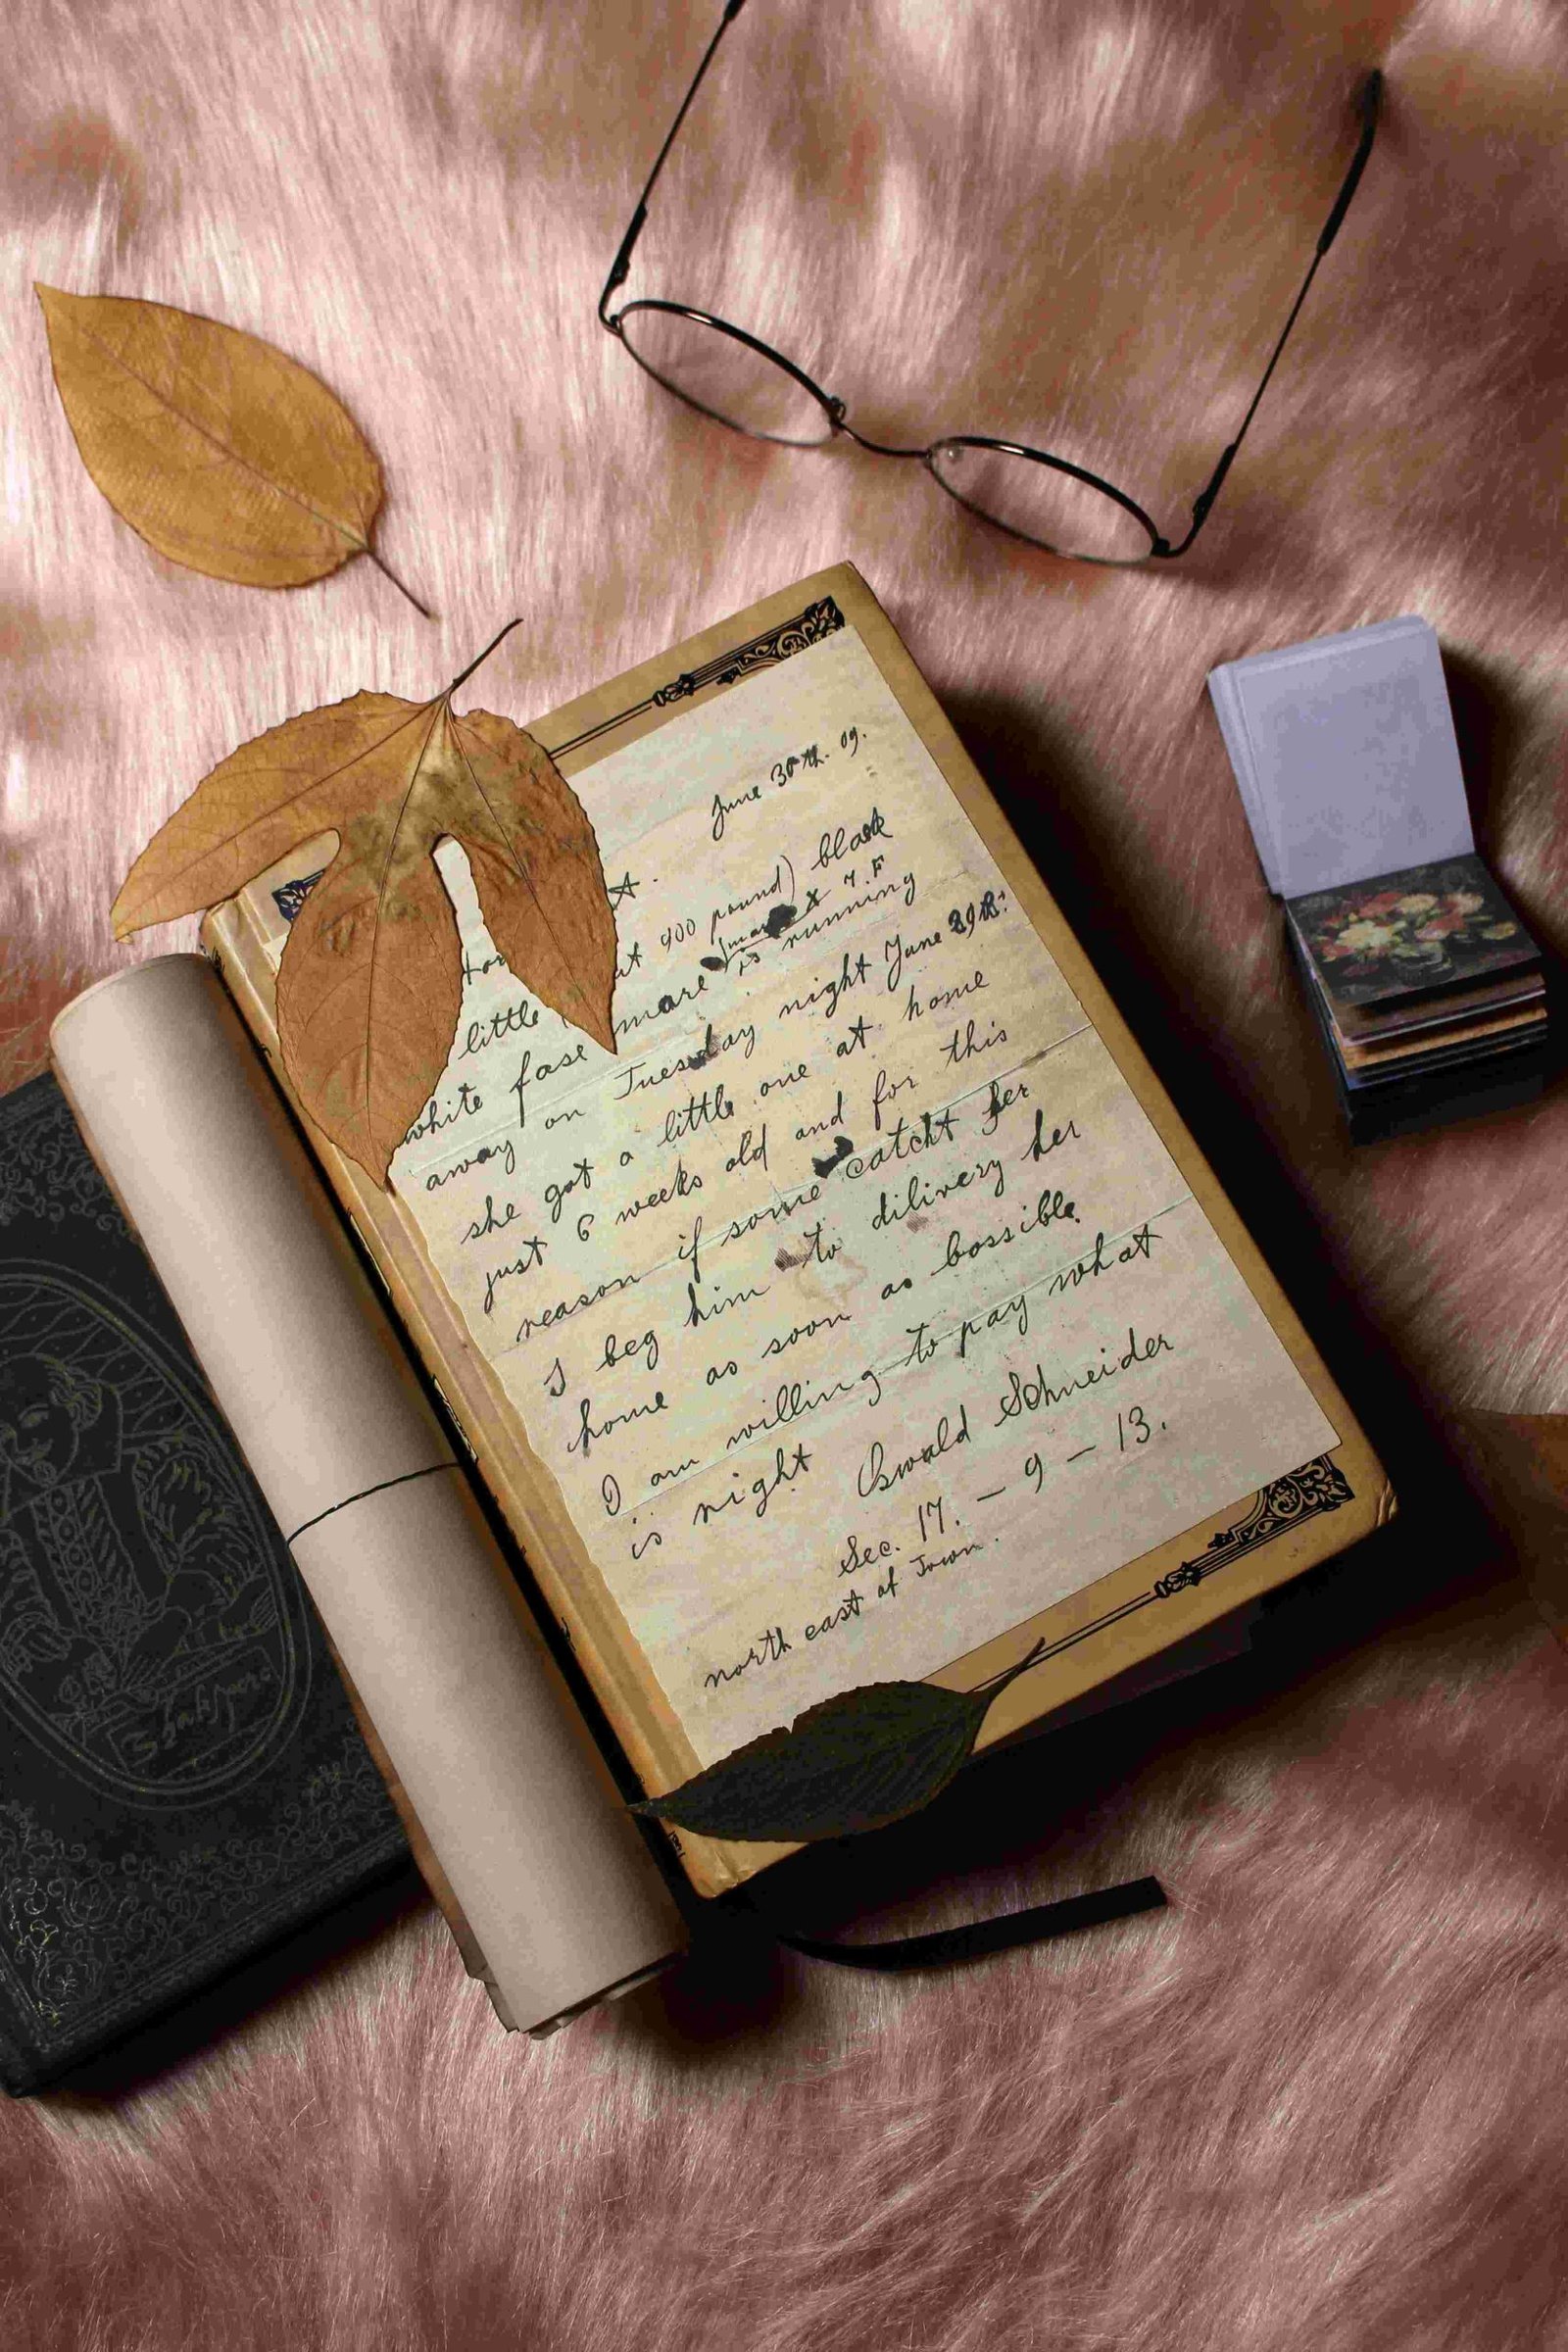 June 30th. 09.
little at 900 pound) black
white fase mare is running
away on Tuesday night June 29th:
she got a little one at home
just 6 weeks old and for this
reason if some catcht her
I beg him to dilivery her
home as soon as bossible.
I am willing to pay what
is right Oswald Schneider
Sec. 17. – 9 – 13.
north east of Town.